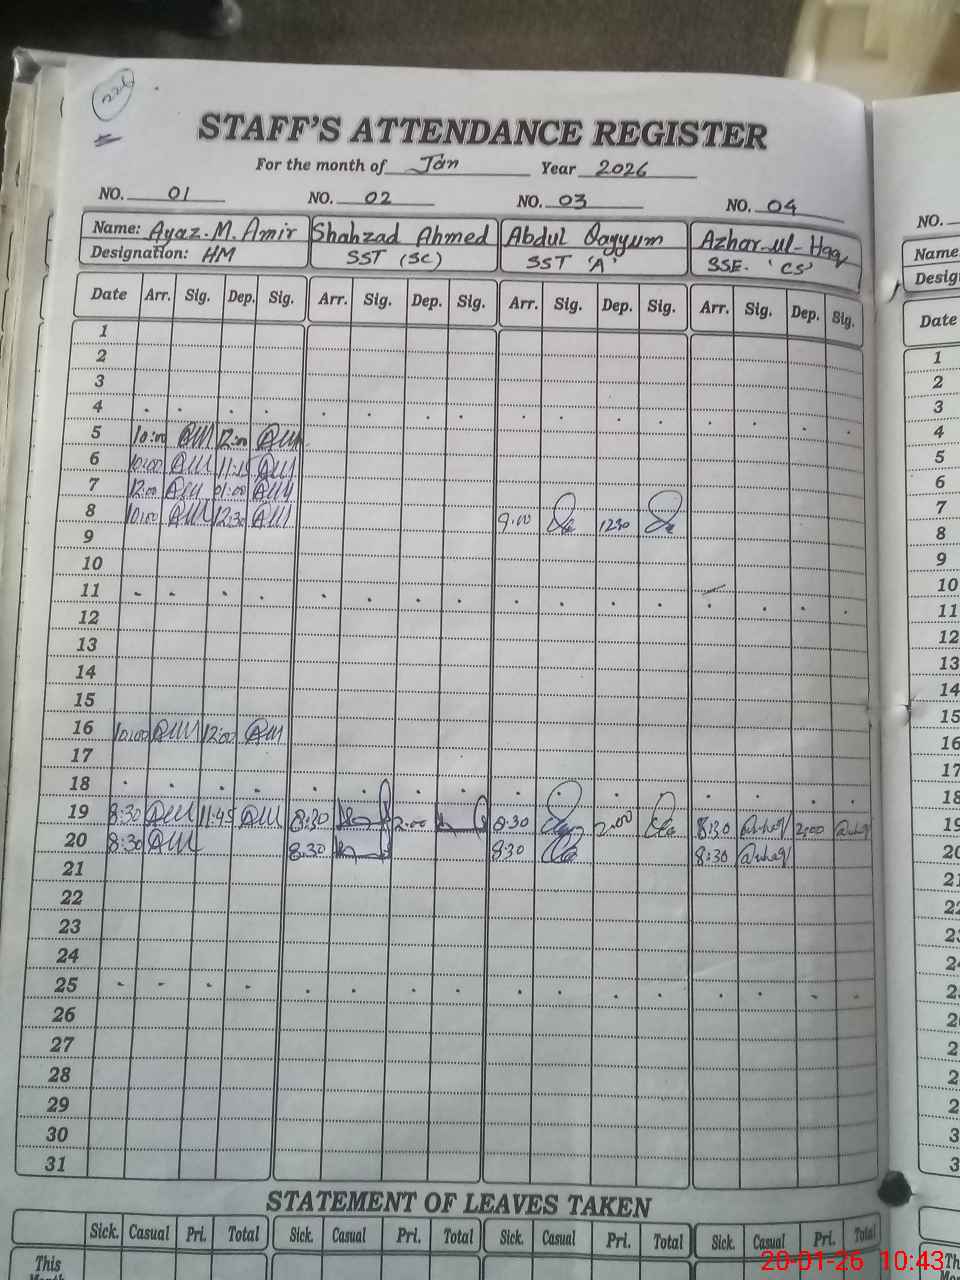 226
STAFF'S ATTENDANCE REGISTER
For the month of Jan Year 2026
NO. 01 NO. 02 NO. 03 NO. 04 NO.
Name: Ayaz.M.Amir Shahzad Ahmed Abdul Qayyum Azhar-ul-Haq Name
Designation: HM SST (SC) SST 'A' SSE. 'CS' Desig
Date Arr. Sig. Dep. Sig. Arr. Sig. Dep. Sig. Arr. Sig. Dep. Sig. Arr. Sig. Dep. Sig. Date
1 1
2 2
3 3
4 4
5 10:00 12:00 5
6 10:00 11:15 6
7 12:00 01:00 7
8 10:00 12:30 9:00 1230 8
9 9
10 10
11 11
12 12
13 13
14 14
15 15
16 10:00 12:00 16
17 17
18 18
19 8:30 11:45 8:30 2:00 8:30 2:00 8:30 2:00 19
20 8:30 8:30 8:30 8:30 20
21 21
22 22
23 23
24 24
25 2
26 2
27 2
28 2
29 2
30 3
31 3
STATEMENT OF LEAVES TAKEN
Sick. Casual Pri. Total Sick. Casual Pri. Total Sick. Casual Pri. Total Sick. Casual Pri. Total
This
Month
20-01-26 10:43